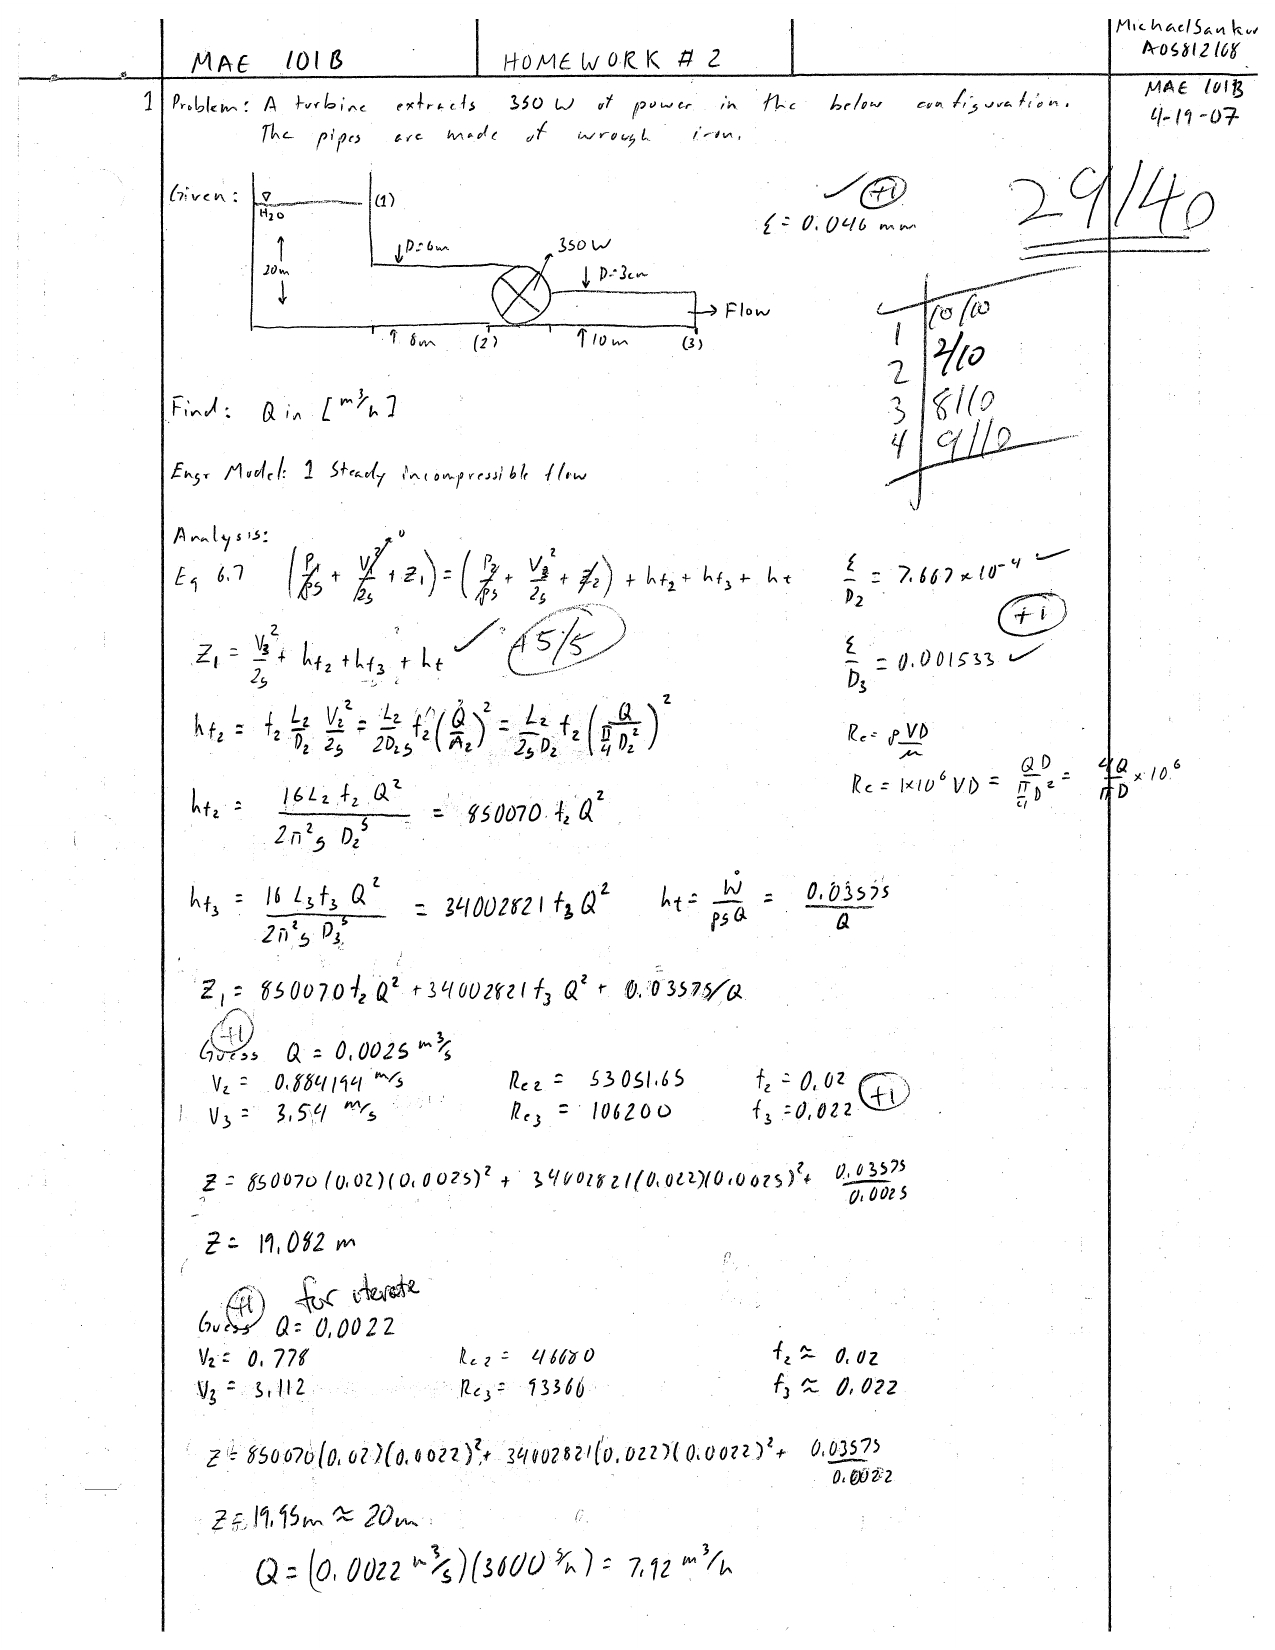 MAE 101B
HOMEWORK # 2
Michael Sankur
A05812168
MAE 101B
4-19-07
1 Problem: A turbine extracts 350 W of power in the below configuration.
The pipes are made of wrough iron.
Given:
H2O
(1)
20m
D=6cm
350 W
D=3cm
→ Flow
8m (2) 10m (3)
✓ +1
ε = 0.046 mm
29/40
1 10/10
2 2/10
3 8/10
4 9/10
Find: Q in [m³/h]
Engr Model: 1 Steady incompressible flow
Analysis:
Eq 6.7 (P1/ρg + V1²/2g + Z1) = (P3/ρg + V3²/2g + Z2) + hf2 + hf3 + ht
0
ε/D2 = 7.667 × 10⁻⁴ ✓
+1
Z1 = V3²/2g + hf2 + hf3 + ht ✓ +5/5
ε/D3 = 0.001533 ✓
hf2 = f2 L2/D2 V2²/2g = L2/2D2g f2 (Q/A2)² = L2/2gD2 f2 (Q/(π/4 D2²))²
Re = ρVD/μ
Re = 1×10⁶ VD = QD/(π/4 D²) = 4Q/πD × 10⁶
hf2 = 16L2 f2 Q²/2π²g D2⁵ = 850070 f2 Q²
hf3 = 16 L3 f3 Q²/2π²g D3⁵ = 34002821 f3 Q² ht = Ẇ/ρgQ = 0.03575/Q
Z1 = 850070 f2 Q² + 34002821 f3 Q² + 0.03575/Q
+1
Guess Q = 0.0025 m³/s
V2 = 0.884194 m/s Re2 = 53051.65 f2 = 0.02
V3 = 3.54 m/s Re3 = 106200 f3 = 0.022 +1
Z = 850070(0.02)(0.0025)² + 34002821(0.022)(0.0025)² + 0.03575/0.0025
Z = 19.082 m
+1 for iterate
Guess Q = 0.0022
V2 = 0.778 Re2 = 46680 f2 ≈ 0.02
V3 = 3.112 Re3 = 93366 f3 ≈ 0.022
Z = 850070(0.02)(0.0022)² + 34002821(0.022)(0.0022)² + 0.03575/0.0022
Z = 19.95m ≈ 20m
Q = (0.0022 m³/s)(3600 s/h) = 7.92 m³/h